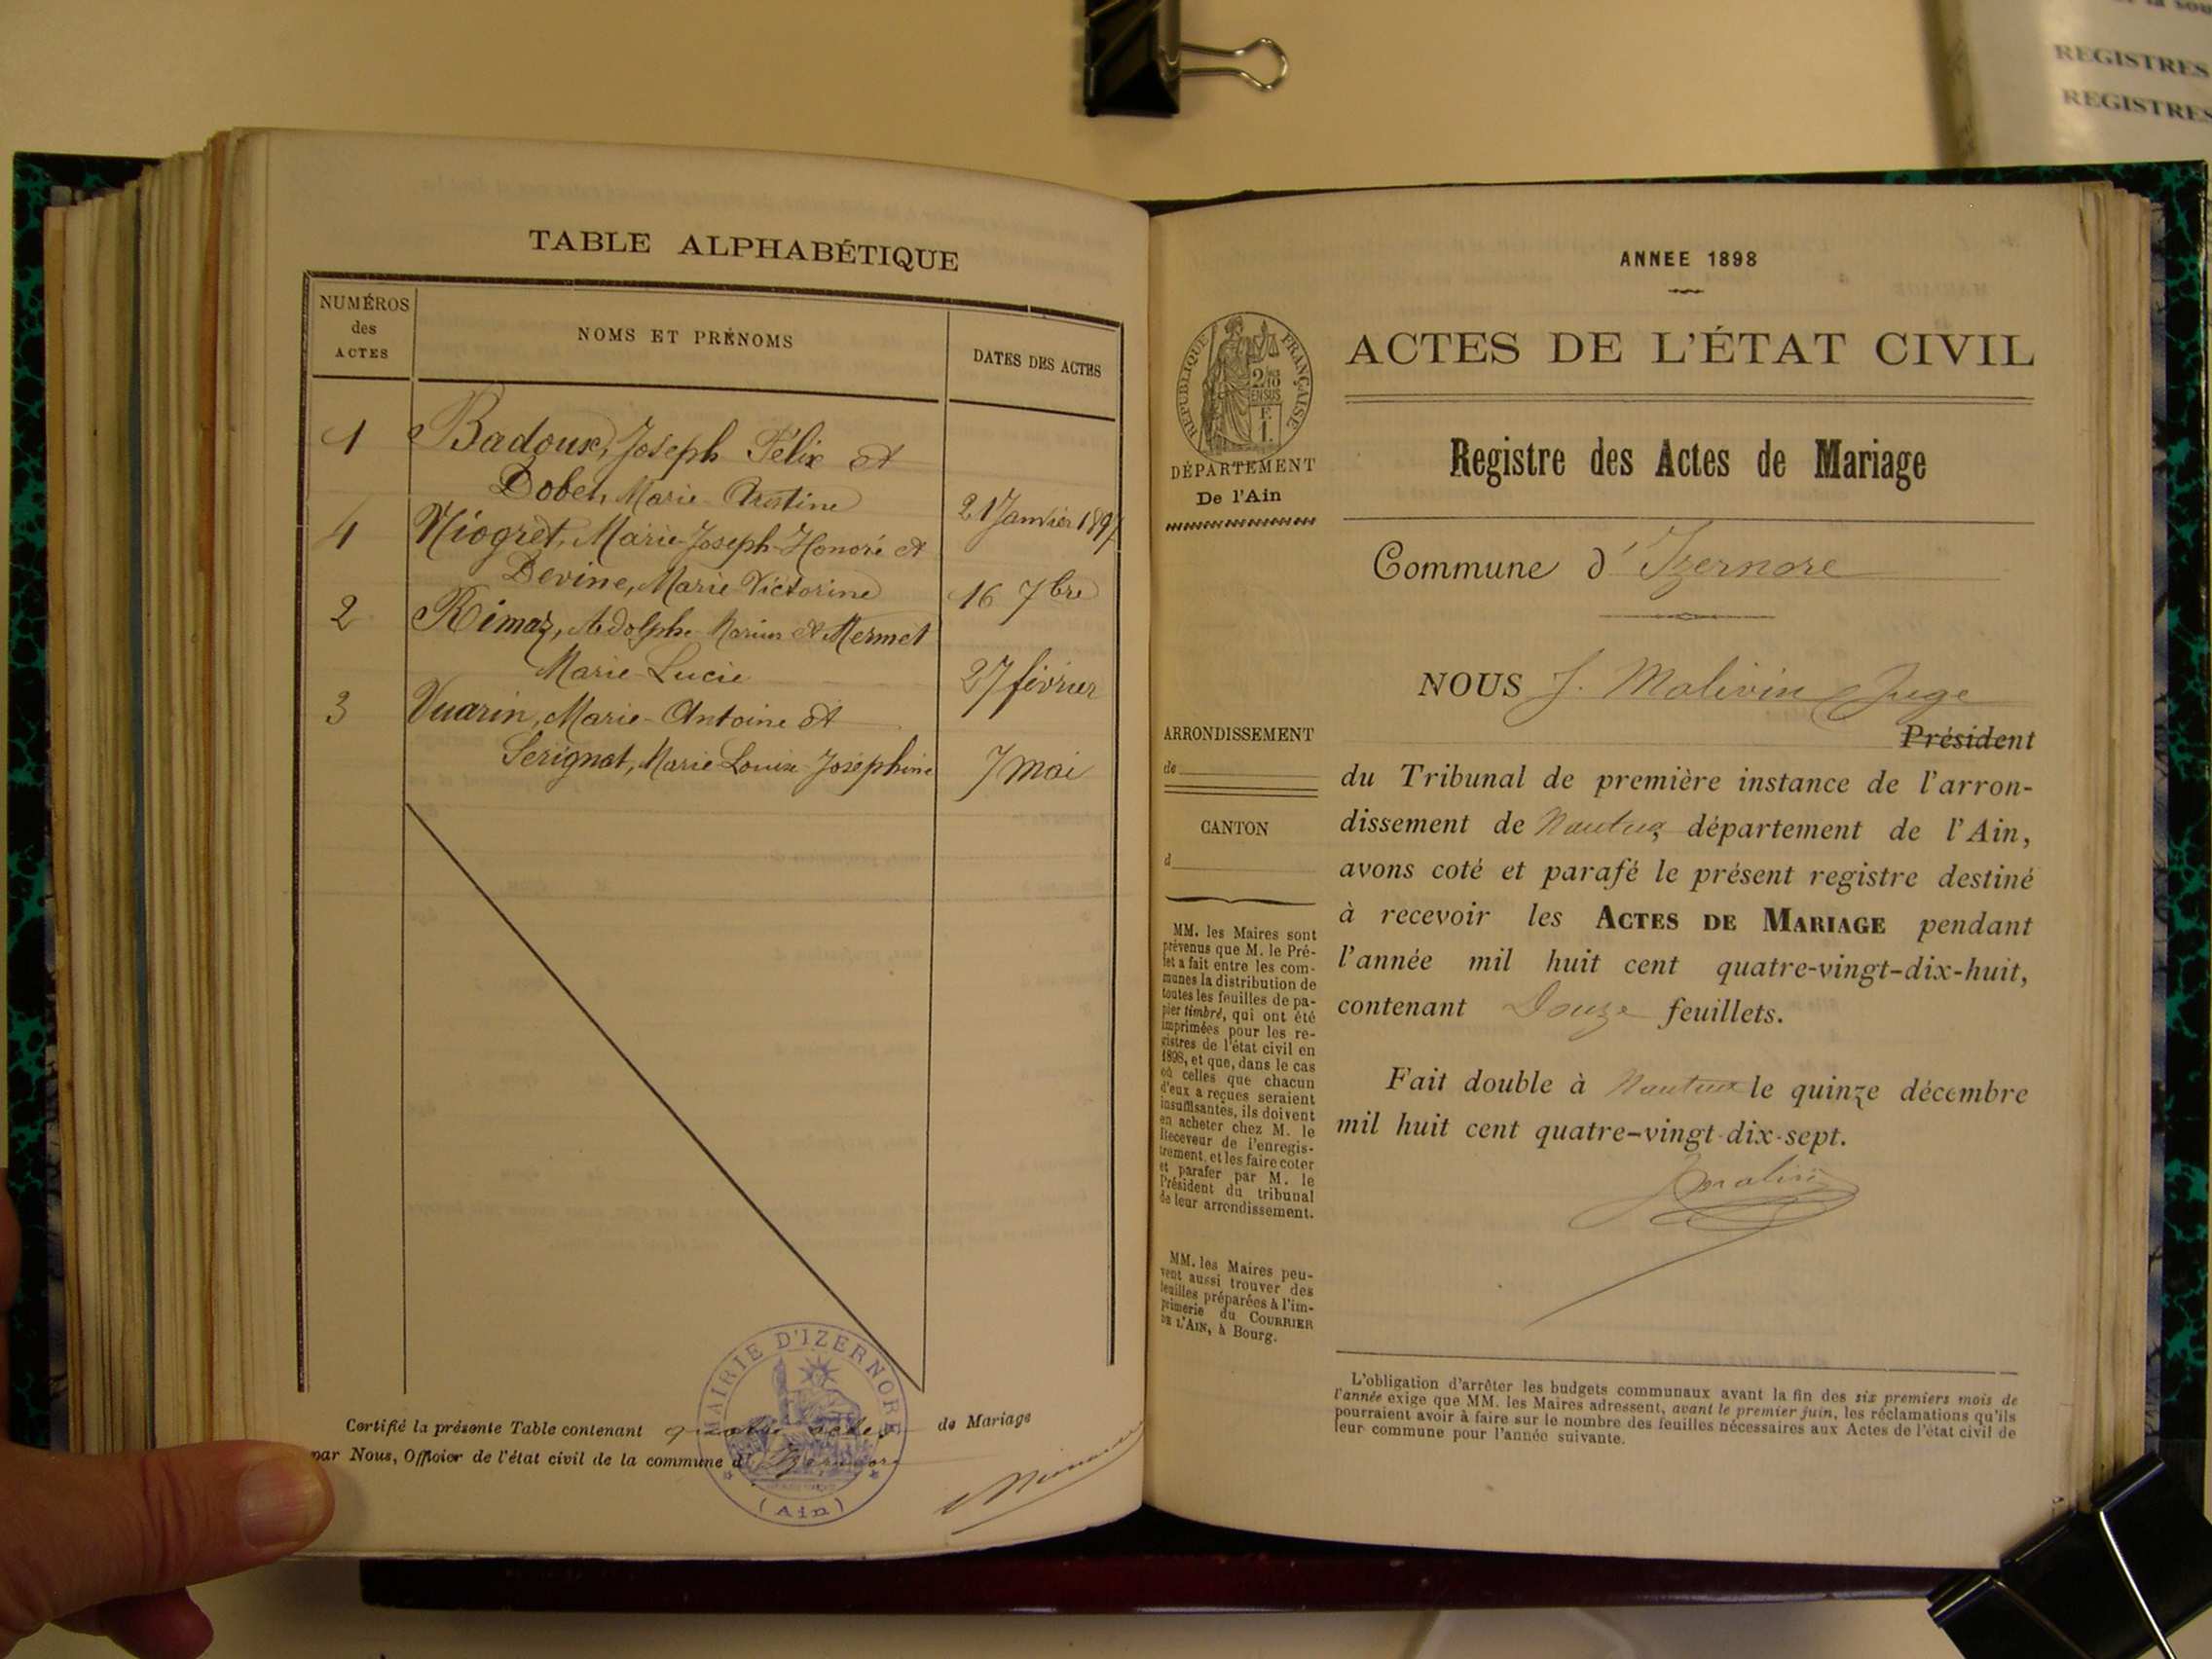 REGISTRES
REGISTRES
TABLE ALPHABÉTIQUE
NUMÉROS
des
ACTES
NOMS ET PRÉNOMS
DATES DES ACTES
1 Badoux, Joseph Félix et
Dobet, Marie-Christine 21 Janvier 1897
4 Niogret, Marie-Joseph-Honoré et
Devine, Marie Victorine 16 7bre
2 Rimaz, Adolphe Marius et Mermet
Marie-Lucie 27 février
3 Vuarin, Marie-Antoine et
Serignat, Marie-Louise-Joséphine 7 mai
Certifié la présente Table contenant quatre actes de Mariage
par Nous, Officier de l'état civil de la commune d'Izernore
MAIRIE D'IZERNORE
(Ain)
ANNEE 1898
ACTES DE L'ÉTAT CIVIL
Registre des Actes de Mariage
Commune d'Izernore
NOUS J. Malivin Juge
Président
du Tribunal de première instance de l'arron-
dissement de Nantua, département de l'Ain,
avons coté et parafé le présent registre destiné
à recevoir les ACTES DE MARIAGE pendant
l'année mil huit cent quatre-vingt-dix-huit,
contenant Douze feuillets.
Fait double à Nantua le quinze décembre
mil huit cent quatre-vingt-dix-sept.
L'obligation d'arrêter les budgets communaux avant la fin des six premiers mois de
l'année exige que MM. les Maires adressent, avant le premier juin, les réclamations qu'ils
pourraient avoir à faire sur le nombre des feuilles nécessaires aux Actes de l'état civil de
leur commune pour l'année suivante.
RÉPUBLIQUE FRANÇAISE
2/10
EN SUS
DÉPARTEMENT
De l'Ain
ARRONDISSEMENT
de
CANTON
d
MM. les Maires sont
prévenus que M. le Pré-
fet a fait entre les com-
munes la distribution de
toutes les feuilles de pa-
pier timbré, qui ont été
imprimées pour les re-
gistres de l'état civil en
1898, et que, dans le cas
où celles que chacun
d'eux a reçues seraient
insuffisantes, ils doivent
en acheter chez M. le
Receveur de l'enregis-
trement, et les faire coter
et parafer par M. le
Président du tribunal
de leur arrondissement.
MM. les Maires peu-
vent aussi trouver des
feuilles préparées à l'im-
primerie du COURRIER
DE L'AIN, à Bourg.